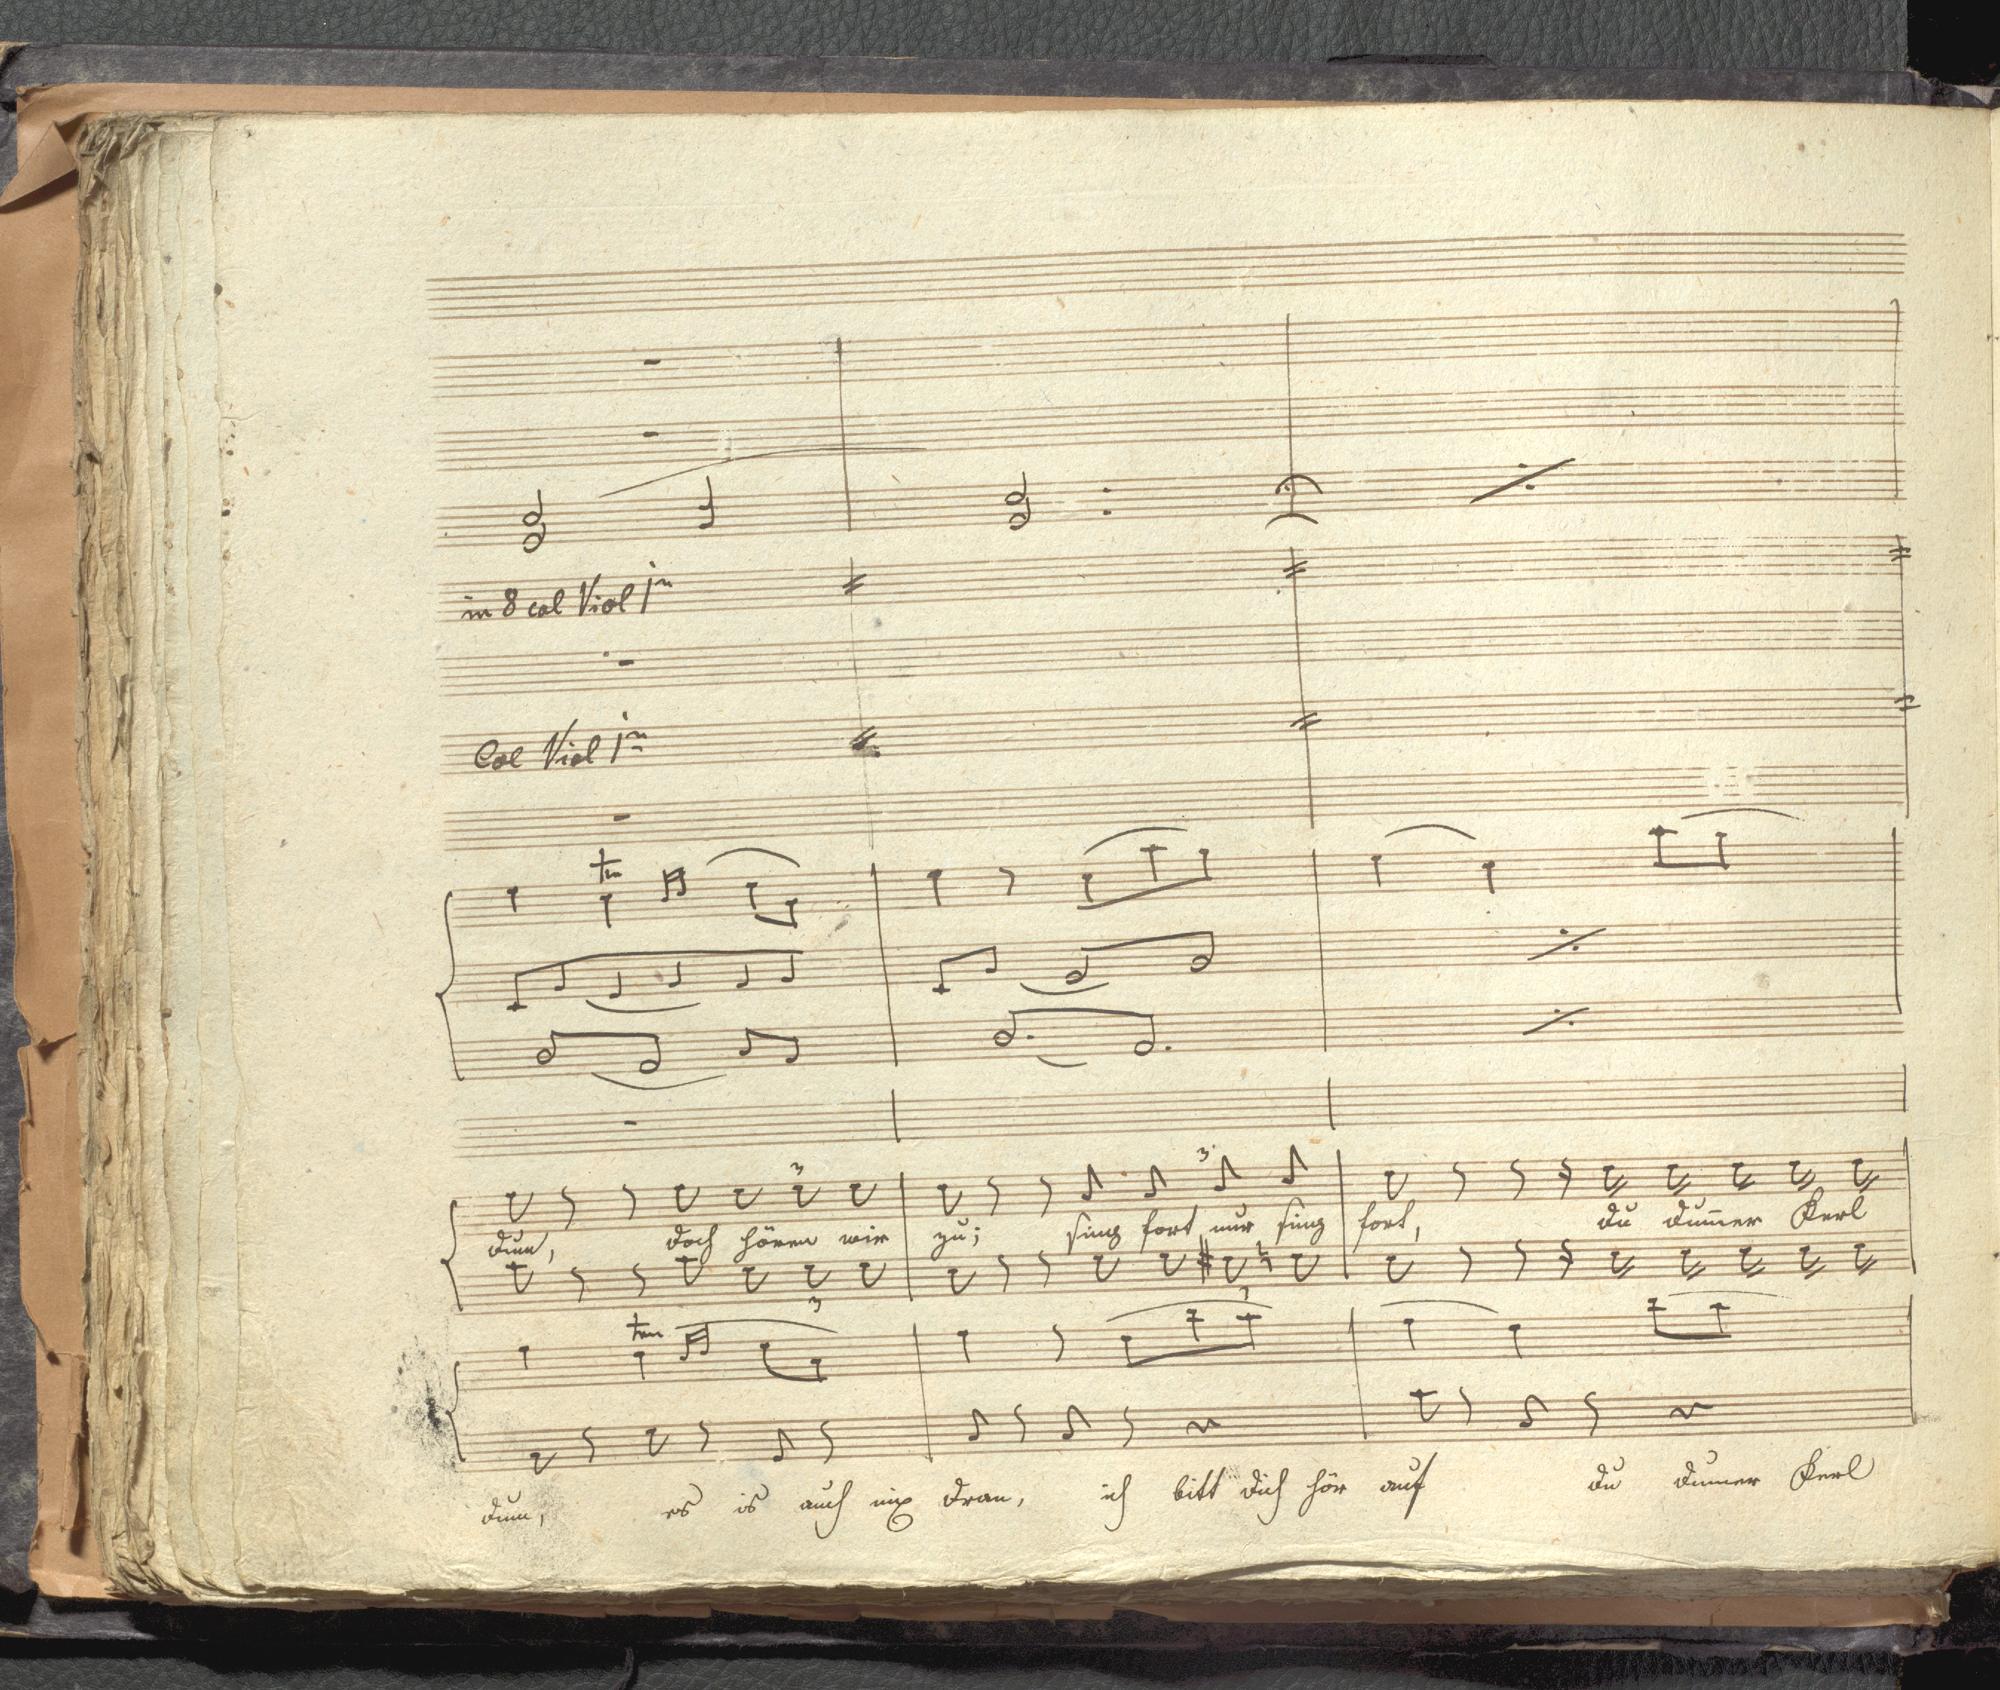 in 8 col Viol 1mo
Col Viol 1mo
tr
3 3
dum, doch hören wir zu; sing fort nur sing fort, du dum̄er Kerl
3 3
tr
dum, es is auch nix dran, ich bitt dich hör auf du dummer Kerl